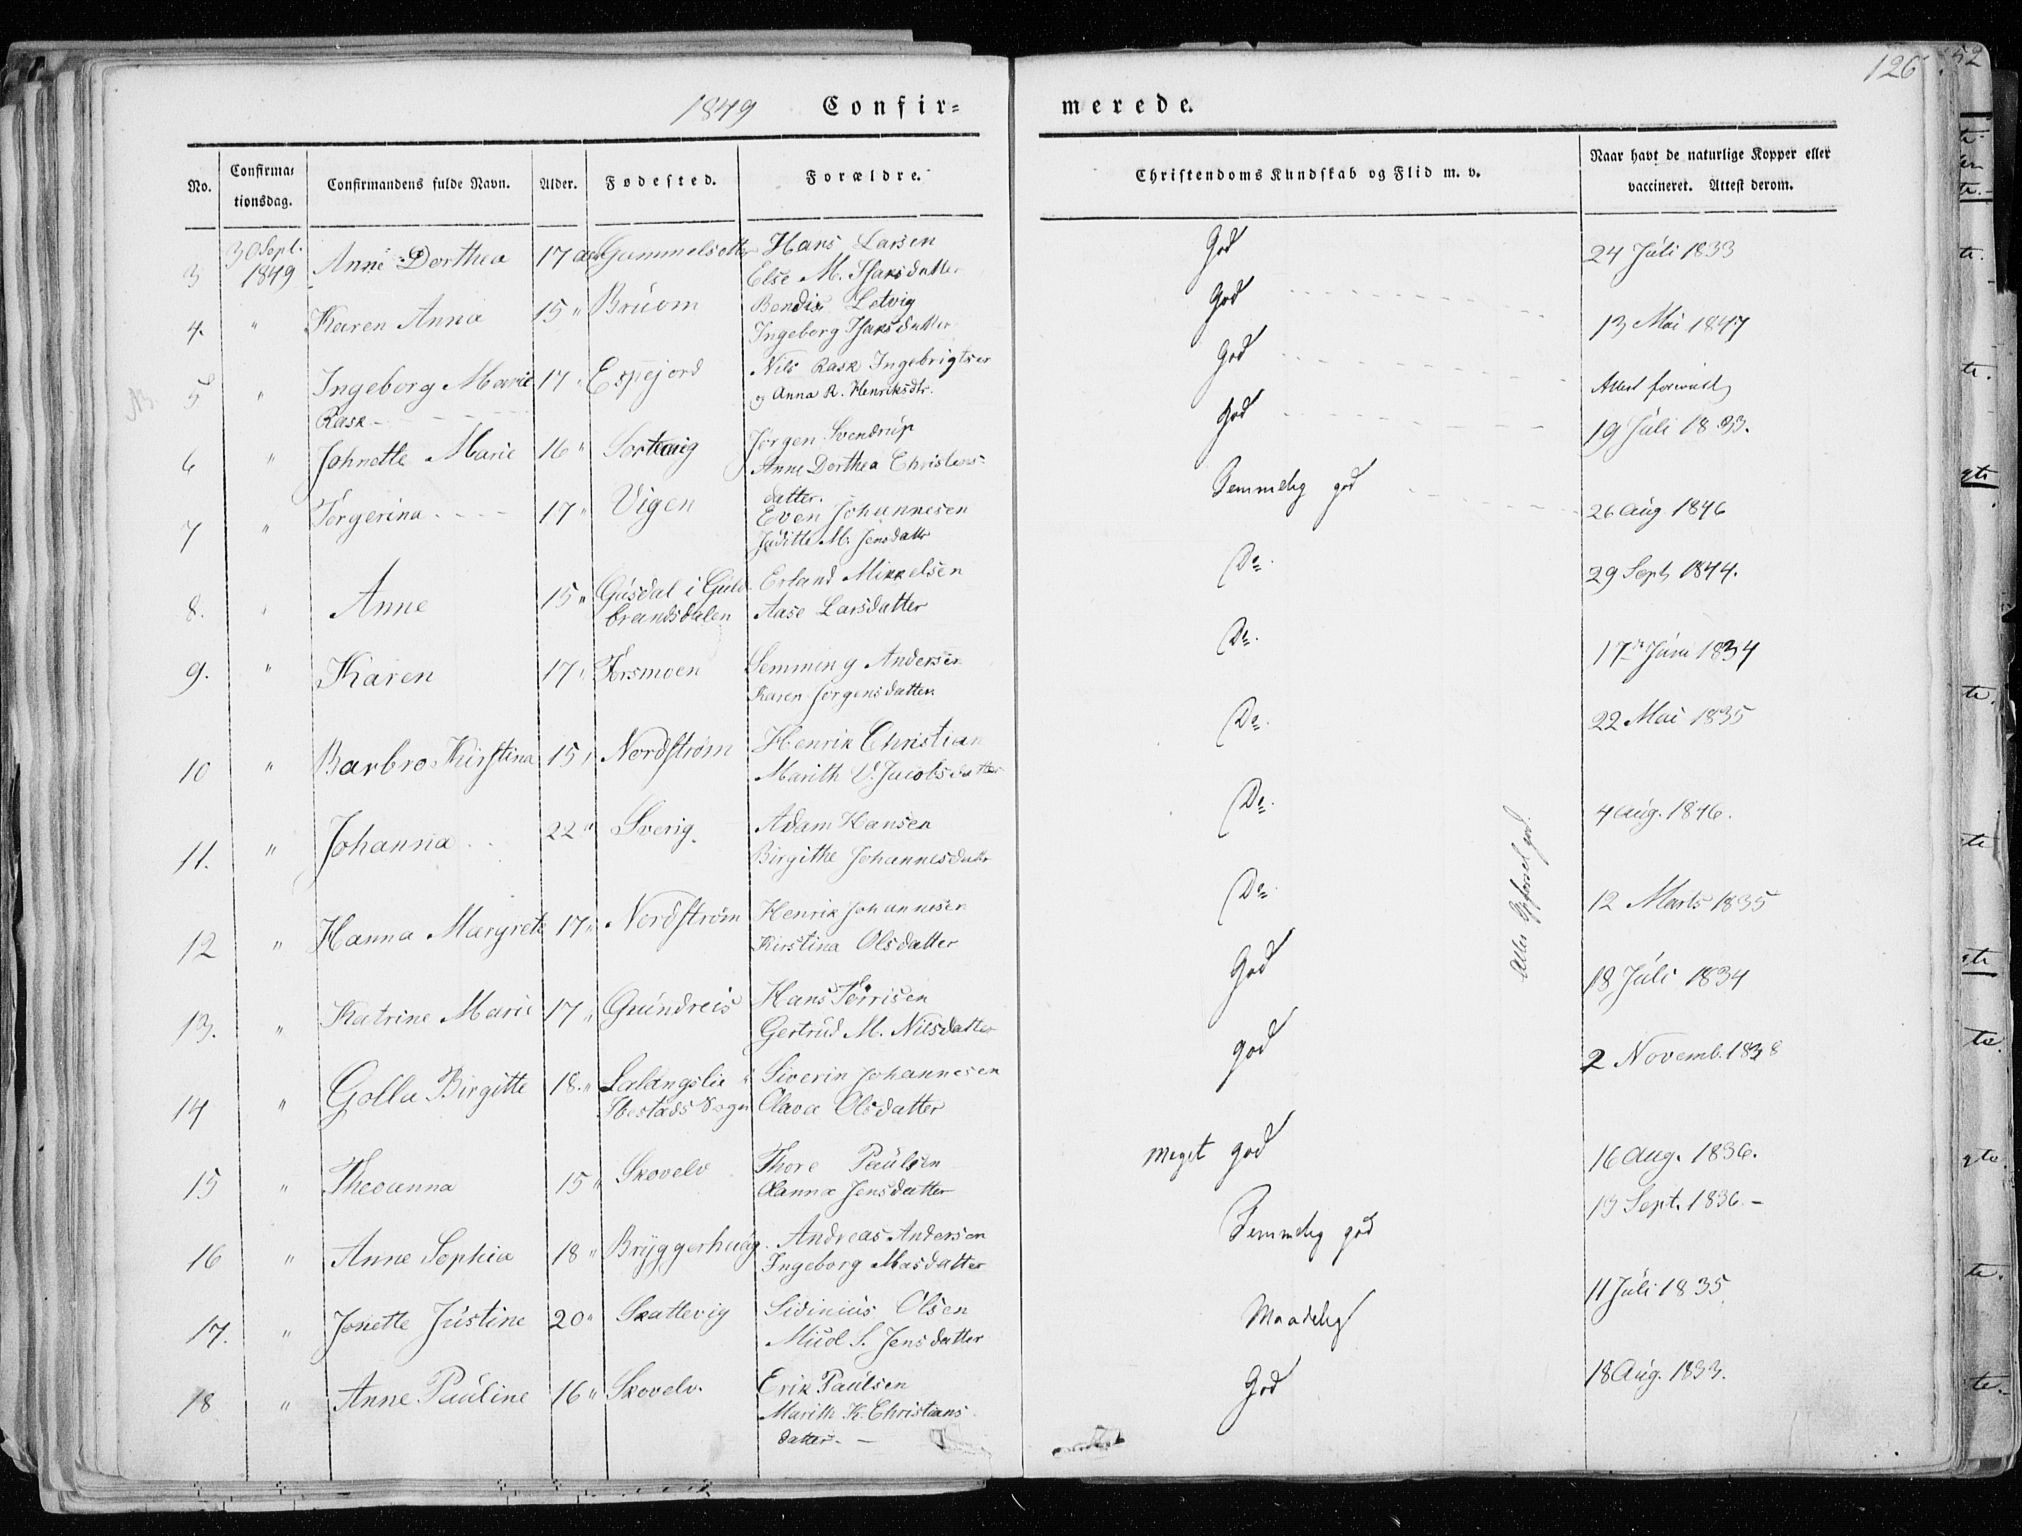 1849 Confir= merede. 126
No. Confirma= tionsdag. Confirmandens fulde Navn. Alder. Fødested. Forældre. Christendoms Kundskab og Flid m. v. Naar havt de naturlige Kopper eller vaccineret. Attest derom.
3 30 Sept. 1849 Anne Dorthea 17 Gammelsæter Hans Larsen God 24 Juli 1833
Else M. Isaksdatter
4. " Karen Anna 15 " Bruom Bendix Letvig God 13 Mai 1847
Ingeborg Isaksdatter
5 " Ingeborg Marie 17 " Espejord Nils Rask Ingebrigtsen God Attest
Rask og Anna R. Henriksdtr.
6 " Johnette Marie 16 " Jørgen Svendrup God 19 Juli 1833.
Anne Dorthea Christens=
datter.
7 " Torgerina 17 " Vigen Even Johannesen Temmelig god 26 Aug 1846
Juditte M. Jensdattr
8. " Anne 15 " Gusdal i Guld Erland Mikkelsen Do. 29 Sept 1844.
brandsdalen Aase Larsdatter
9. " Karen 17 " Forsmoen Semming Andersen Do. 17 Juni 1834
Karen Jørgensdatter
10 " Barbro Kirstina 15 " Nordstrøm Henrik Christian Do. 22 Mai 1835
Marith U. Jacobsdatter
11. " Johanna 22 " Sverig Adam Hansen Do. 4 Aug. 1846.
Birgithe Johannesdatr
12 " Hanna Margrete 17 " Nordstrøm Henrik Johannesen Do. 12 Marts 1835
Kirstina Olsdatter
13. " Katrine Marie 17 " Grundreis Hans Tørrisen God 18 Juli 1834
Gertrud M. Nilsdatter
14 " Golla Birgitte 18. " Salangslie i Siverin Johannesen god 2 Novemb. 1838
Ibestads Sogn Olava Olsdatter
15 " Theoanna 15 " Skovelv Thore Paulsen Meget god 16 Aug. 1836.
Hanna Jensdatter
16 " Anne Sophia 18 " Bryggerhaug Andreas Andersen Temmelig god 13 Sept. 1836 -
Ingeborg Masdatter
17. " Jonette Justine 20 " Skattevig Sivinius Olsen Maadelig 11 Juli 1835
S. Jensdatter
18 " Anne Pauline 16 " Skovelv. Erik Paulsen God 18 Aug. 1833.
Marith K. Christians
datter. -
Alles Opførsel god.